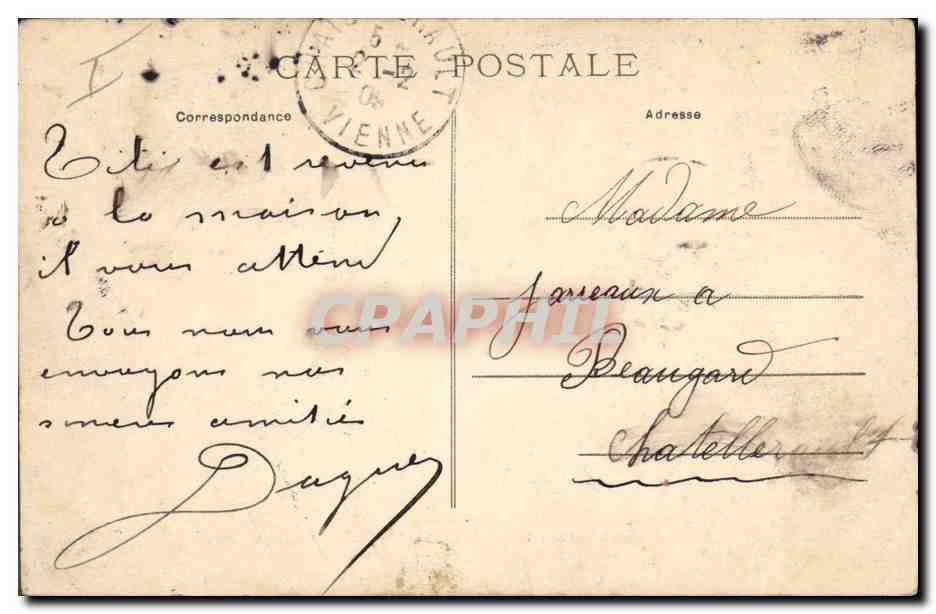 CARTE POSTALE
CHATELLERAULT
5
2
04
VIENNE
Correspondance
Titi est revenu
à la maison,
il vous attend
Tous nous vous
envoyons nos
sinceres amitiés
Daguer
Adresse
Madame
Jarreaux a
Beaugard
Chatellerault
CPAPHIL
I